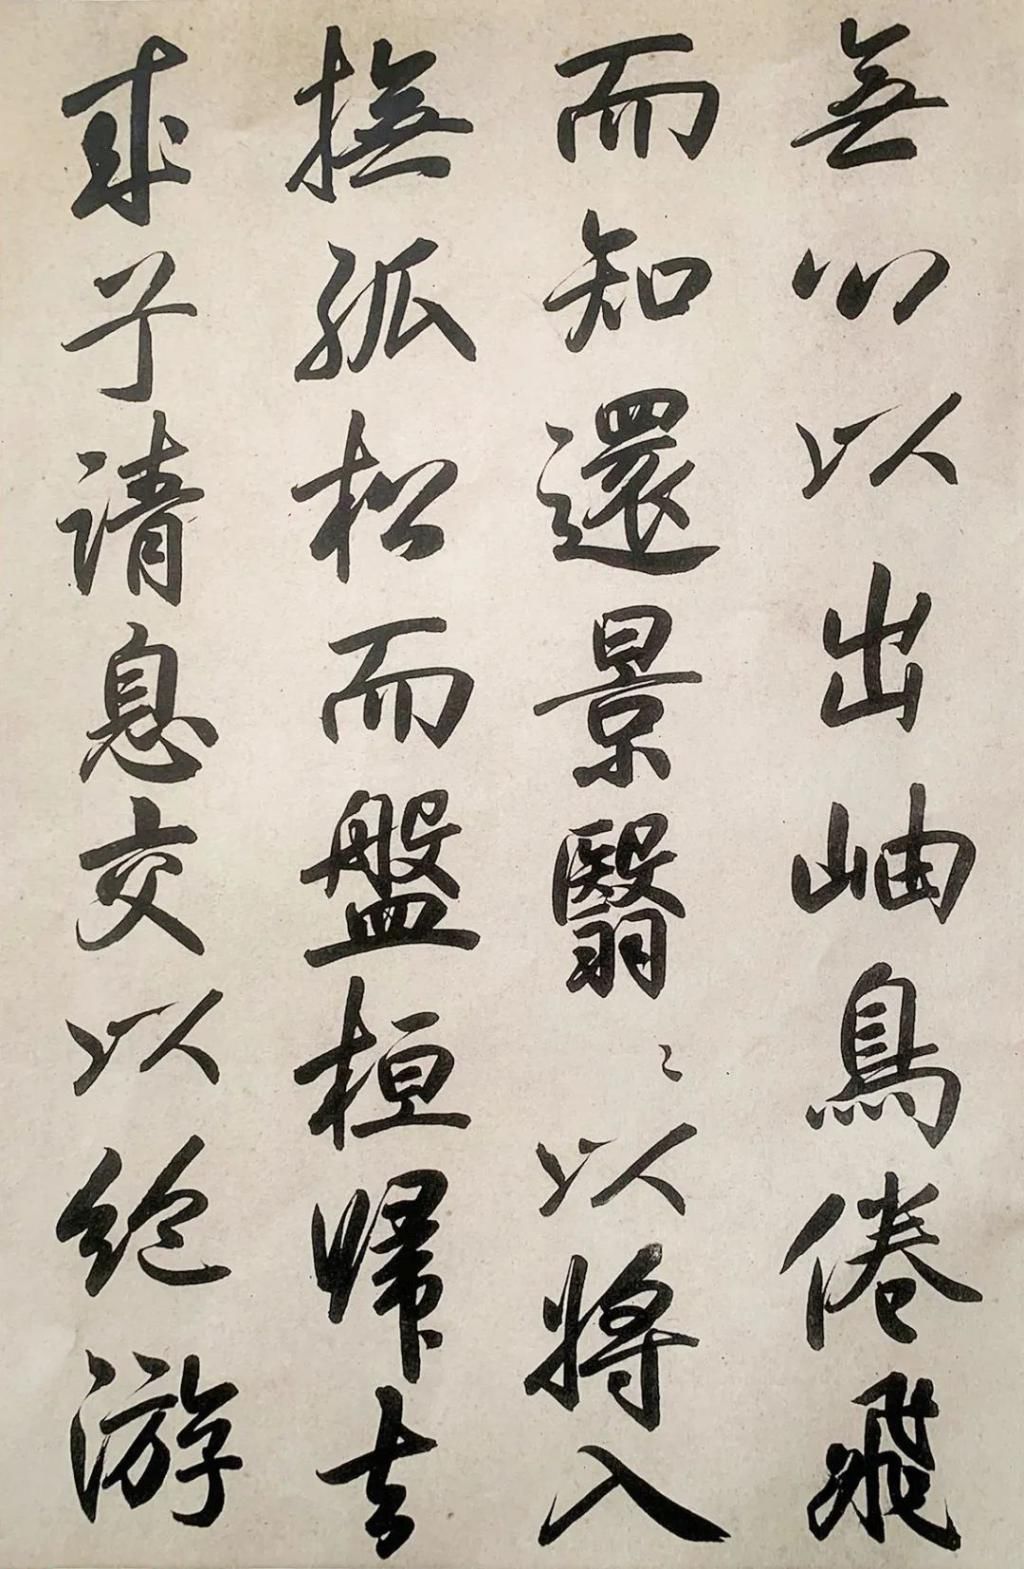 無心以出岫鳥倦飛
而知還景翳〻以將入
撫孤松而盤桓歸去
來兮請息交以絕游